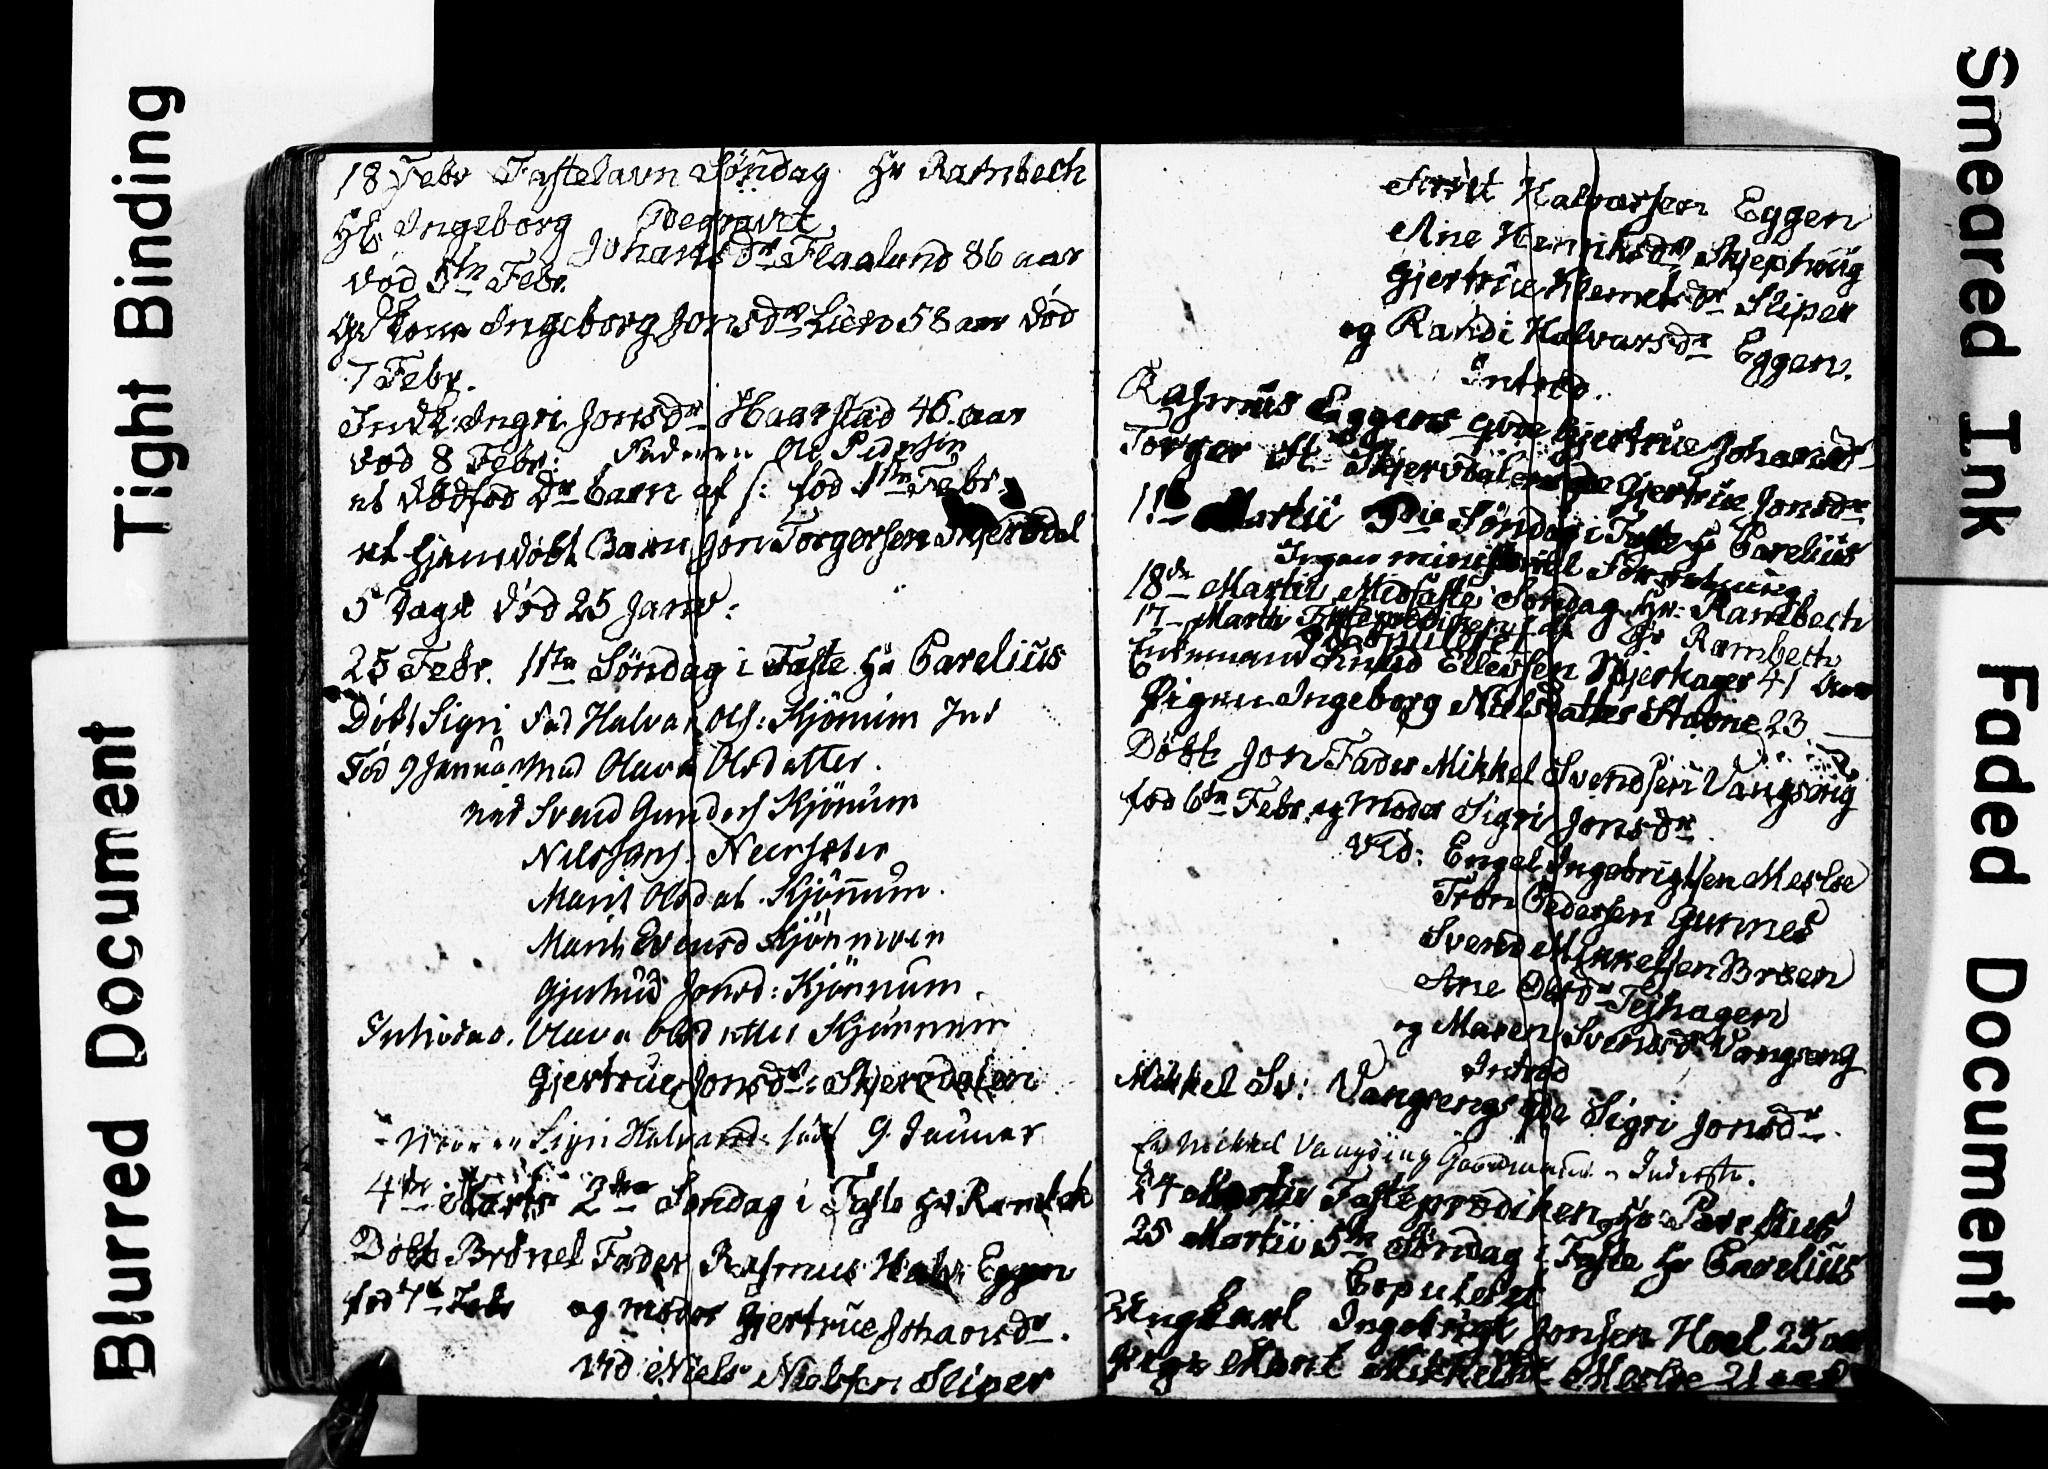 Tight Binding
Blurred Document
18 Febr Fastelavn Söndag Hr Rambech
Begravet
Ingeborg Johansdr Flaalund 86 aar
död 5te Febr.
Gd kone Ingeborg Jonsdr Lien 58 aar död
7 Febr.
Ind k: Ingri Jonsdr Haarstad 46 aar
död 8 Febr:
Faderen Ole Pedersen
et dödföd dr barn af s: föd 1ste Febr.
et hjemdöbt Barn Jon Torgersen Skjerdal
5 Dage död 25 Janv:
25 Febr. 1ste Söndag i Faste Hr Parelius
Döbt Sigri Fad Halvar Ols: Kjönum Ind
Föd 9 Januar Mod Olava Olsdatter.
vid Svend Gunders Kjönum
Nils Neersæter
Marit Olsdat. Kjönum.
Marit Evensd Kjönmoen
Gjertrud Jonsd: Kjönnum.
Introdac. Olava Olsdatter Kjönnum
Gjertrue Jonsdr: Skjerdalen
Sigri Halvarsd: född 9 Januar
4de Marts 2den Söndag i Faste Hr Rambek
Döbt Brönel Fader Rasmus Halv Eggen
föd 7de Febr og moder Gjertrue Johansdr.
vid Niels Nielsen Sliper
Halvarsen Eggen
Ane Henriksdr Skjephoug
Gjertrue Klemetsdr Sliper
og Randi Halvarsdr Eggen.
Introd.
Rasmus Eggens qvde Gjertrue Johansdr
Torger St. Skjerdalens qde Gjertrue Jonsdr
11te Martii 3die Söndag i Faste Hr Parelius
Ingen ministeriel Forretning
18de Martii Midfaste Söndag Hr: Rambech
17 Martii Fasteprædiken af Hr Rambech
Copulered
Enkemand Knud Ellevsen Bjerkager 41 aar
Pigen Ingeborg Nielsdatter Stavne 23
Döbt Jon Fader Mikkel Svendsen Vangseng
föd 6te Febr. og Moder Sigri Jonsdr.
Vid: Engel Ingebrigtsen Mesloe
Trön Pedersen Gunnes
Svend Mikkelsen Bröen
Ane Olsdr Tejhagen
og Maren Svendsdr Vangseng
Introd
Mikkel Sv: Vangsengs qde Sigri Jonsdr.
Er Mikkel Vangseng Gaardmand Inderste.
24 Martii Fasteprædiken Hr Parelius
25 Martii 5te Söndag i Faste Hr Parelius
Copuleret
Ungkarl Ingebrigt Jonsen Hoel 25 aar
Pige Marit Mikkelsdr Meslöe 21 aar
Smeared Ink
Faded Document